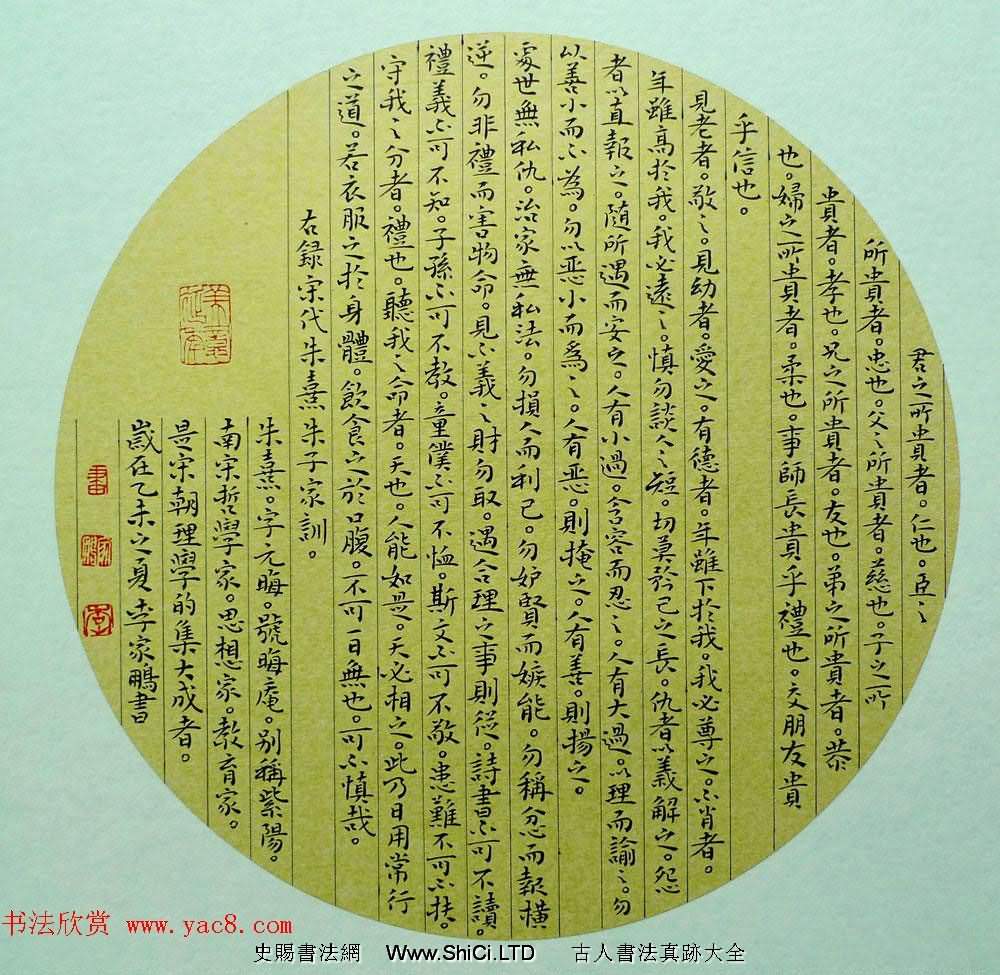 君之所貴者。仁也。臣之
所貴者。忠也。父之所貴者。慈也。子之所
貴者。孝也。兄之所貴者。友也。弟之所貴者。恭
也。婦之所貴者。柔也。事師長貴乎禮也。交朋友貴
乎信也。
見老者。敬之。見幼者。愛之。有德者。年雖下於我。我必尊之。不肖者。
年雖高於我。我必遠之。慎勿談人之短。切莫矜己之長。仇者以義解之。怨
者以直報之。隨所遇而安之。人有小過。含容而忍之。人有大過。以理而諭之。勿
以善小而不為。勿以惡小而為之。人有惡。則掩之。人有善。則揚之。
處世無私仇。治家無私法。勿損人而利己。勿妒賢而嫉能。勿稱忿而報橫
逆。勿非禮而害物命。見不義之財勿取。遇合理之事則從。詩書不可不讀。
禮義不可不知。子孫不可不教。童僕不可不恤。斯文不可不敬。患難不可不扶。
守我之分者。禮也。聽我之命者。天也。人能如是。天必相之。此乃日用常行
之道。若衣服之於身體。飲食之於口腹。不可一日無也。可不慎哉。
右錄宋代朱熹朱子家訓。
朱熹。字元晦。號晦庵。別稱紫陽。
南宋哲學家。思想家。教育家。
是宋朝理學的集大成者。
歲在乙未之夏李家鵬書
书法欣赏 www.yac8.com
史賜書法網 Www.ShiCi.LTD 古人書法真跡大全